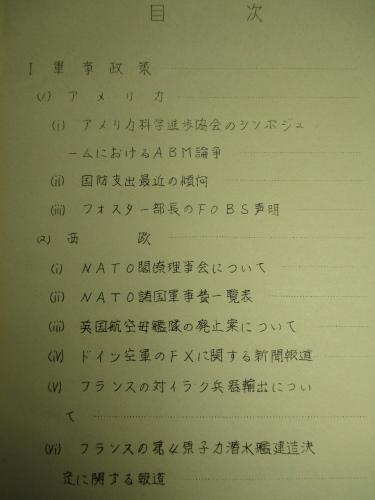 目次
I 軍事政策
(1) アメリカ
(i) アメリカ科学進歩協会のシンポジュ
ームにおけるABM論争
(ii) 国防支出最近の傾向
(iii) フォスター部長のFOBS声明
(2) 西欧
(i) NATO閣僚理事会について
(ii) NATO諸国軍事費一覧表
(iii) 英国航空母艦隊の廃止案について
(iv) ドイツ空軍のFXに関する新聞報道
(v) フランスの対イラク兵器輸出につい
て
(vi) フランスの第4原子力潜水艦建造決
定に関する報道